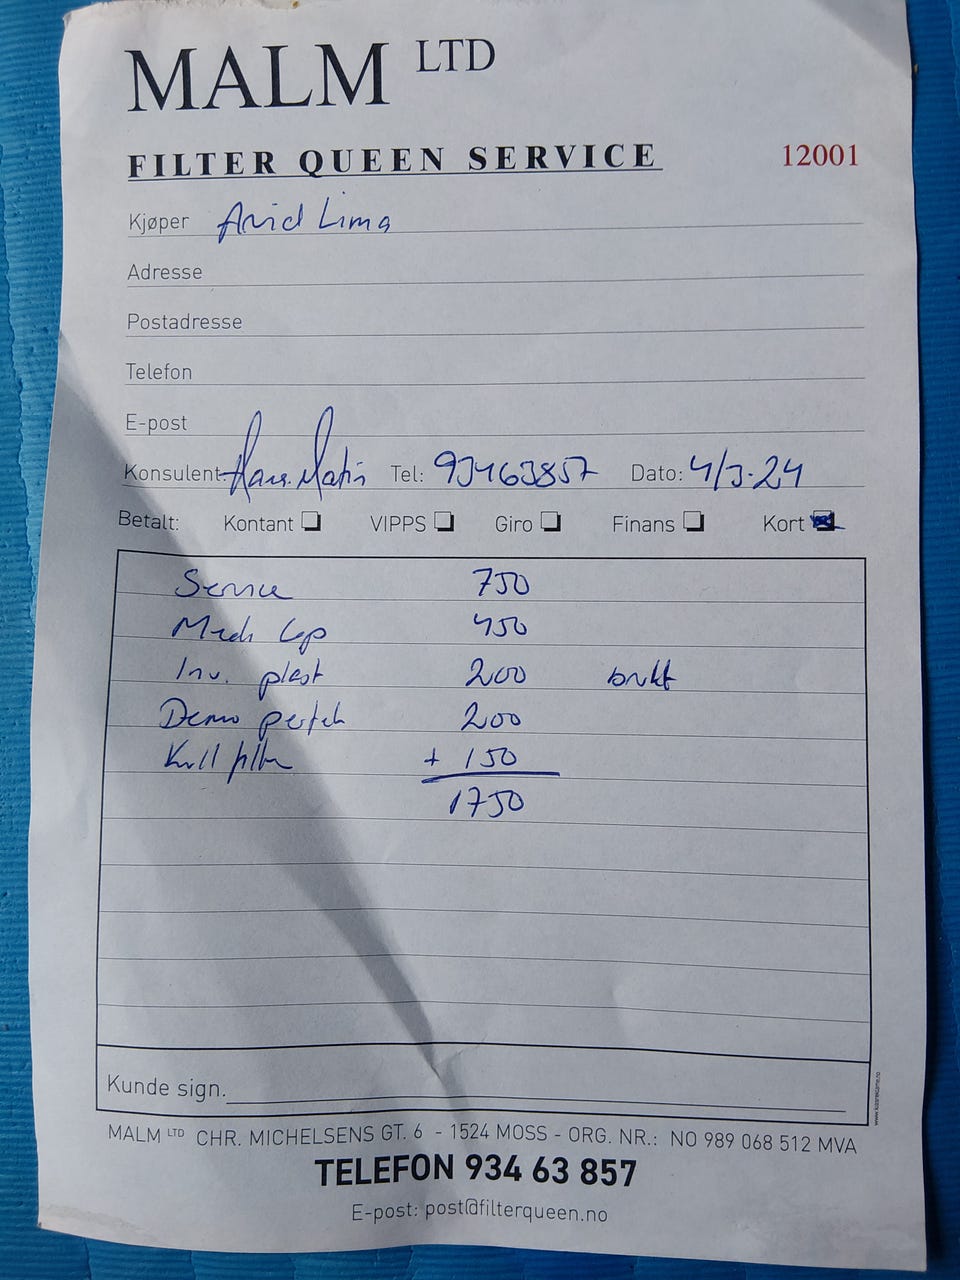 MALM LTD
FILTER QUEEN SERVICE 12001
Kjøper Arvid Lima
Adresse
Postadresse
Telefon
E-post
Konsulent Tel: 93463857 Dato: 4/3-24
Betalt: Kontant VIPPS Giro Finans Kort
Service 750
Med. Cap 450
Inv. plast 200 brukt
Demo 200
Kull filter + 150
1750
Kunde sign.
www.klarereklame.no
MALM LTD CHR. MICHELSENS GT. 6 - 1524 MOSS - ORG. NR.: NO 989 068 512 MVA
TELEFON 934 63 857
E-post: post@filterqueen.no